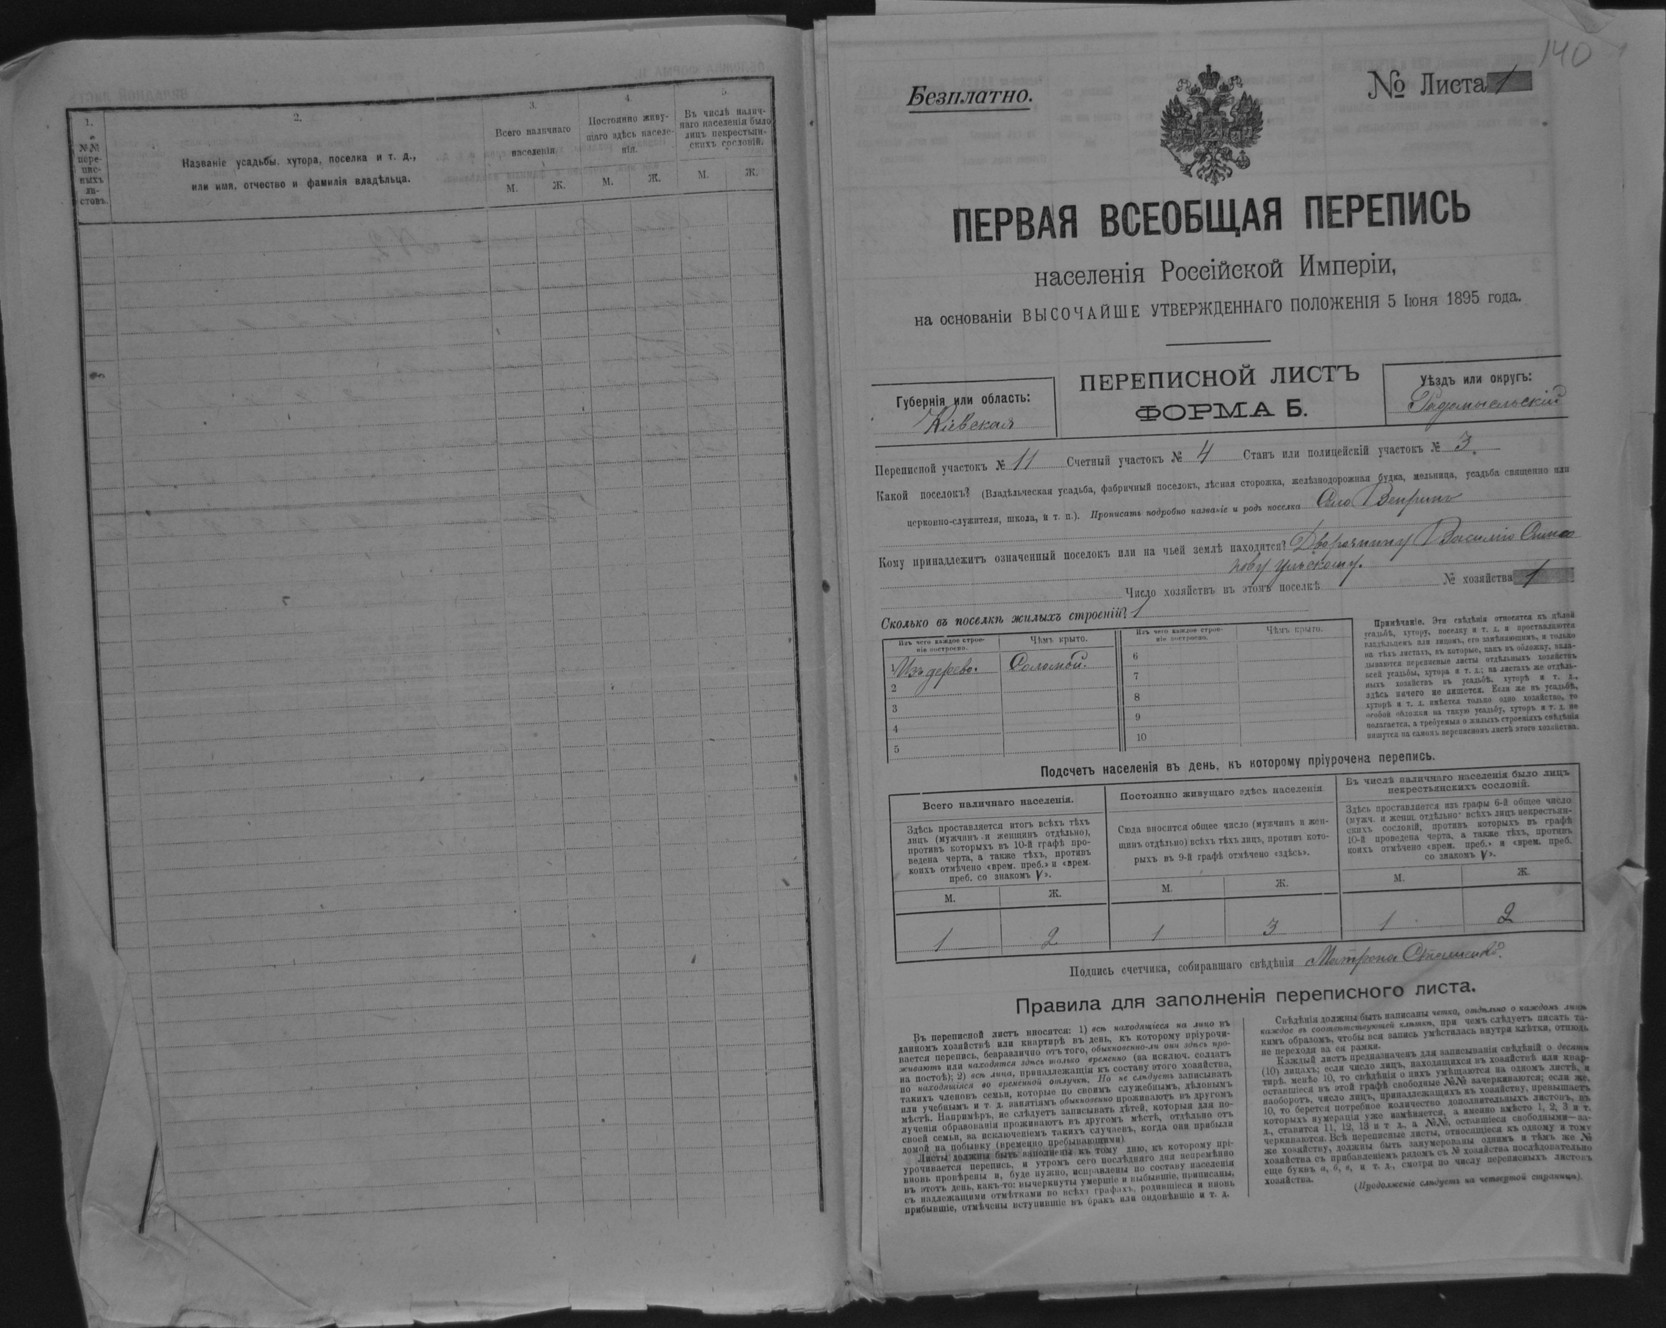 1.
№№
пере-
пис-
ныхъ
ли-
стовъ.
2.
Названіе усадьбы, хутора, поселка и т. д.,
или имя, отчество и фамилія владѣльца.
3.
Всего наличнаго
населенія.
М. Ж.
4.
Постоянно живу-
щаго здѣсь населе-
нія.
М. Ж.
5.
Въ числѣ налич-
наго населенія было
лицъ некрестьян-
скихъ сословій.
М. Ж.
140
Безплатно.
№ Листа 1
ПЕРВАЯ ВСЕОБЩАЯ ПЕРЕПИСЬ
населенія Россійской Имперіи,
на основаніи ВЫСОЧАЙШЕ УТВЕРЖДЕННАГО ПОЛОЖЕНІЯ 5 Іюня 1895 года.
Губернія или область:
Кіевская
ПЕРЕПИСНОЙ ЛИСТЪ
ФОРМА Б.
Уѣздъ или округъ:
Радомысльскій
Переписной участокъ № 11 Счетный участокъ № 4 Станъ или полицейскій участокъ № 3.
Какой поселокъ? (Владѣльческая усадьба, фабричный поселокъ, лѣсная сторожка, желѣзнодорожная будка, мельница, усадьба священно или
церковно-служителя, школа, и т. п.). Прописать подробно названіе и родъ поселка Село Вепринъ
Кому принадлежитъ означенный поселокъ или на чьей землѣ находится? Дворянину Василію
Число хозяйствъ въ этомъ поселкѣ № хозяйства 1
Сколько въ поселкѣ жилыхъ строеній? 1
Изъ чего каждое строе-
ніе построено.
Чѣмъ крыто.
Изъ чего каждое строе-
ніе построено.
Чѣмъ крыто.
1 Изъ дерева. Соломой.
2
3
4
5
6
7
8
9
10
Примѣчаніе. Эти свѣдѣнія относятся къ цѣлой
усадьбѣ, хутору, поселку и т. д. и проставляются
владѣльцемъ или лицомъ, его замѣняющимъ, и только
на тѣхъ листахъ, въ которые, какъ въ обложку, вкла-
дываются переписные листы отдѣльныхъ хозяйствъ
всей усадьбы, хутора и т. д.; на листахъ же отдѣль-
ныхъ хозяйствъ въ усадьбѣ, хуторѣ и т. д.,
здѣсь ничего не пишется. Если же въ усадьбѣ,
хуторѣ и т. д. имѣется только одно хозяйство, то
особой обложки на такую усадьбу, хуторъ и т. д. не
полагается, а требуемыя о жилыхъ строеніяхъ свѣдѣнія
пишутся на самомъ переписномъ листѣ этого хозяйства.
Подсчетъ населенія въ день, къ которому пріурочена перепись.
Всего наличнаго населенія.
Здѣсь проставляется итогъ всѣхъ тѣхъ
лицъ (мужчинъ и женщинъ отдѣльно),
противъ которыхъ въ 10-й графѣ про-
ведена черта, а также тѣхъ, противъ
коихъ отмѣчено «врем. преб.» и «врем.
преб. со знакомъ V».
М. Ж.
1 2
Постоянно живущаго здѣсь населенія
Сюда вносится общее число (мужчинъ и жен-
щинъ отдѣльно) всѣхъ тѣхъ лицъ, противъ кото-
рыхъ въ 9-й графѣ отмѣчено «здѣсь».
М. Ж.
1 3
Въ числѣ наличнаго населенія было лицъ
некрестьянскихъ сословій.
Здѣсь проставляется изъ графы 6-й общее число
(мужч. и женщ. отдѣльно) всѣхъ лицъ некрестьян-
скихъ сословій, противъ которыхъ въ графѣ
10-й проведена черта, а также тѣхъ, противъ
коихъ отмѣчено «врем. преб.» и «врем. преб.
со знакомъ V».
М. Ж.
1 2
Подпись счетчика, собиравшаго свѣдѣнія
Правила для заполненія переписного листа.
Въ переписной листъ вносятся: 1) всѣ находящіеся на лицо въ
данномъ хозяйствѣ или квартирѣ въ день, къ которому пріурочи-
вается перепись, безразлично отъ того, обыкновенно-ли они здѣсь про-
живаютъ или находятся здѣсь только временно (за исключ. солдатъ
на постоѣ); 2) всѣ лица, принадлежащія къ составу этого хозяйства,
но находящіяся во временной отлучкѣ. Но не слѣдуетъ записывать
такихъ членовъ семьи, которые по своимъ служебнымъ, дѣловымъ
или учебнымъ и т. д. занятіямъ обыкновенно проживаютъ въ другомъ
мѣстѣ. Напримѣръ, не слѣдуетъ записывать дѣтей, которыя для по-
лученія образованія проживаютъ въ другомъ мѣстѣ, отдѣльно отъ
своей семьи, за исключеніемъ такихъ случаевъ, когда они прибыли
домой на побывку (временно пребывающими)
Листы должны быть заполнены къ тому дню, къ которому прі-
урочивается перепись, и утромъ сего послѣдняго дня непремѣнно
вновь провѣрены и, буде нужно, исправлены по составу населенія
въ этотъ день, какъ-то: вычеркнуты умершіе и выбывшіе, приписаны,
съ надлежащими отмѣтками во всѣхъ графахъ, родившіеся и вновь
прибывшіе, отмѣчены вступившіе въ бракъ или овдовѣвшіе и т. д.
Свѣдѣнія должны быть написаны четко, отдѣльно о каждомъ лицѣ
каждое въ соотвѣтствующей клѣткѣ, при чемъ слѣдуетъ писать та-
кимъ образомъ, чтобы вся запись умѣстилась внутри клѣтки, отнюдь
не переходя за ея рамки.
Каждый листъ предназначенъ для записыванія свѣдѣній о десяти
(10) лицахъ; если число лицъ, находящихся въ хозяйствѣ или квар-
тирѣ, менѣе 10, то свѣдѣнія о нихъ умѣщаются на одномъ листѣ, и
оставшіеся въ этой графѣ свободные №№ зачеркиваются; если же,
наоборотъ, число лицъ, принадлежащихъ къ хозяйству, превышаетъ
10, то берется потребное количество дополнительныхъ листовъ, въ
которыхъ нумерація уже измѣняется, а именно вмѣсто 1, 2, 3 и т.
д., ставится 11, 12, 13 и т. д., а №№, оставшіеся свободными—за-
черкиваются. Всѣ переписные листы, относящіеся къ одному и тому
же хозяйству, должны быть занумерованы однимъ и тѣмъ же №
хозяйства съ прибавленіемъ рядомъ съ № хозяйства послѣдовательно
еще буквъ а, б, в, и т. д., смотря по числу переписныхъ листовъ
хозяйства.
(Продолженіе слѣдуетъ на четвертой страницѣ).